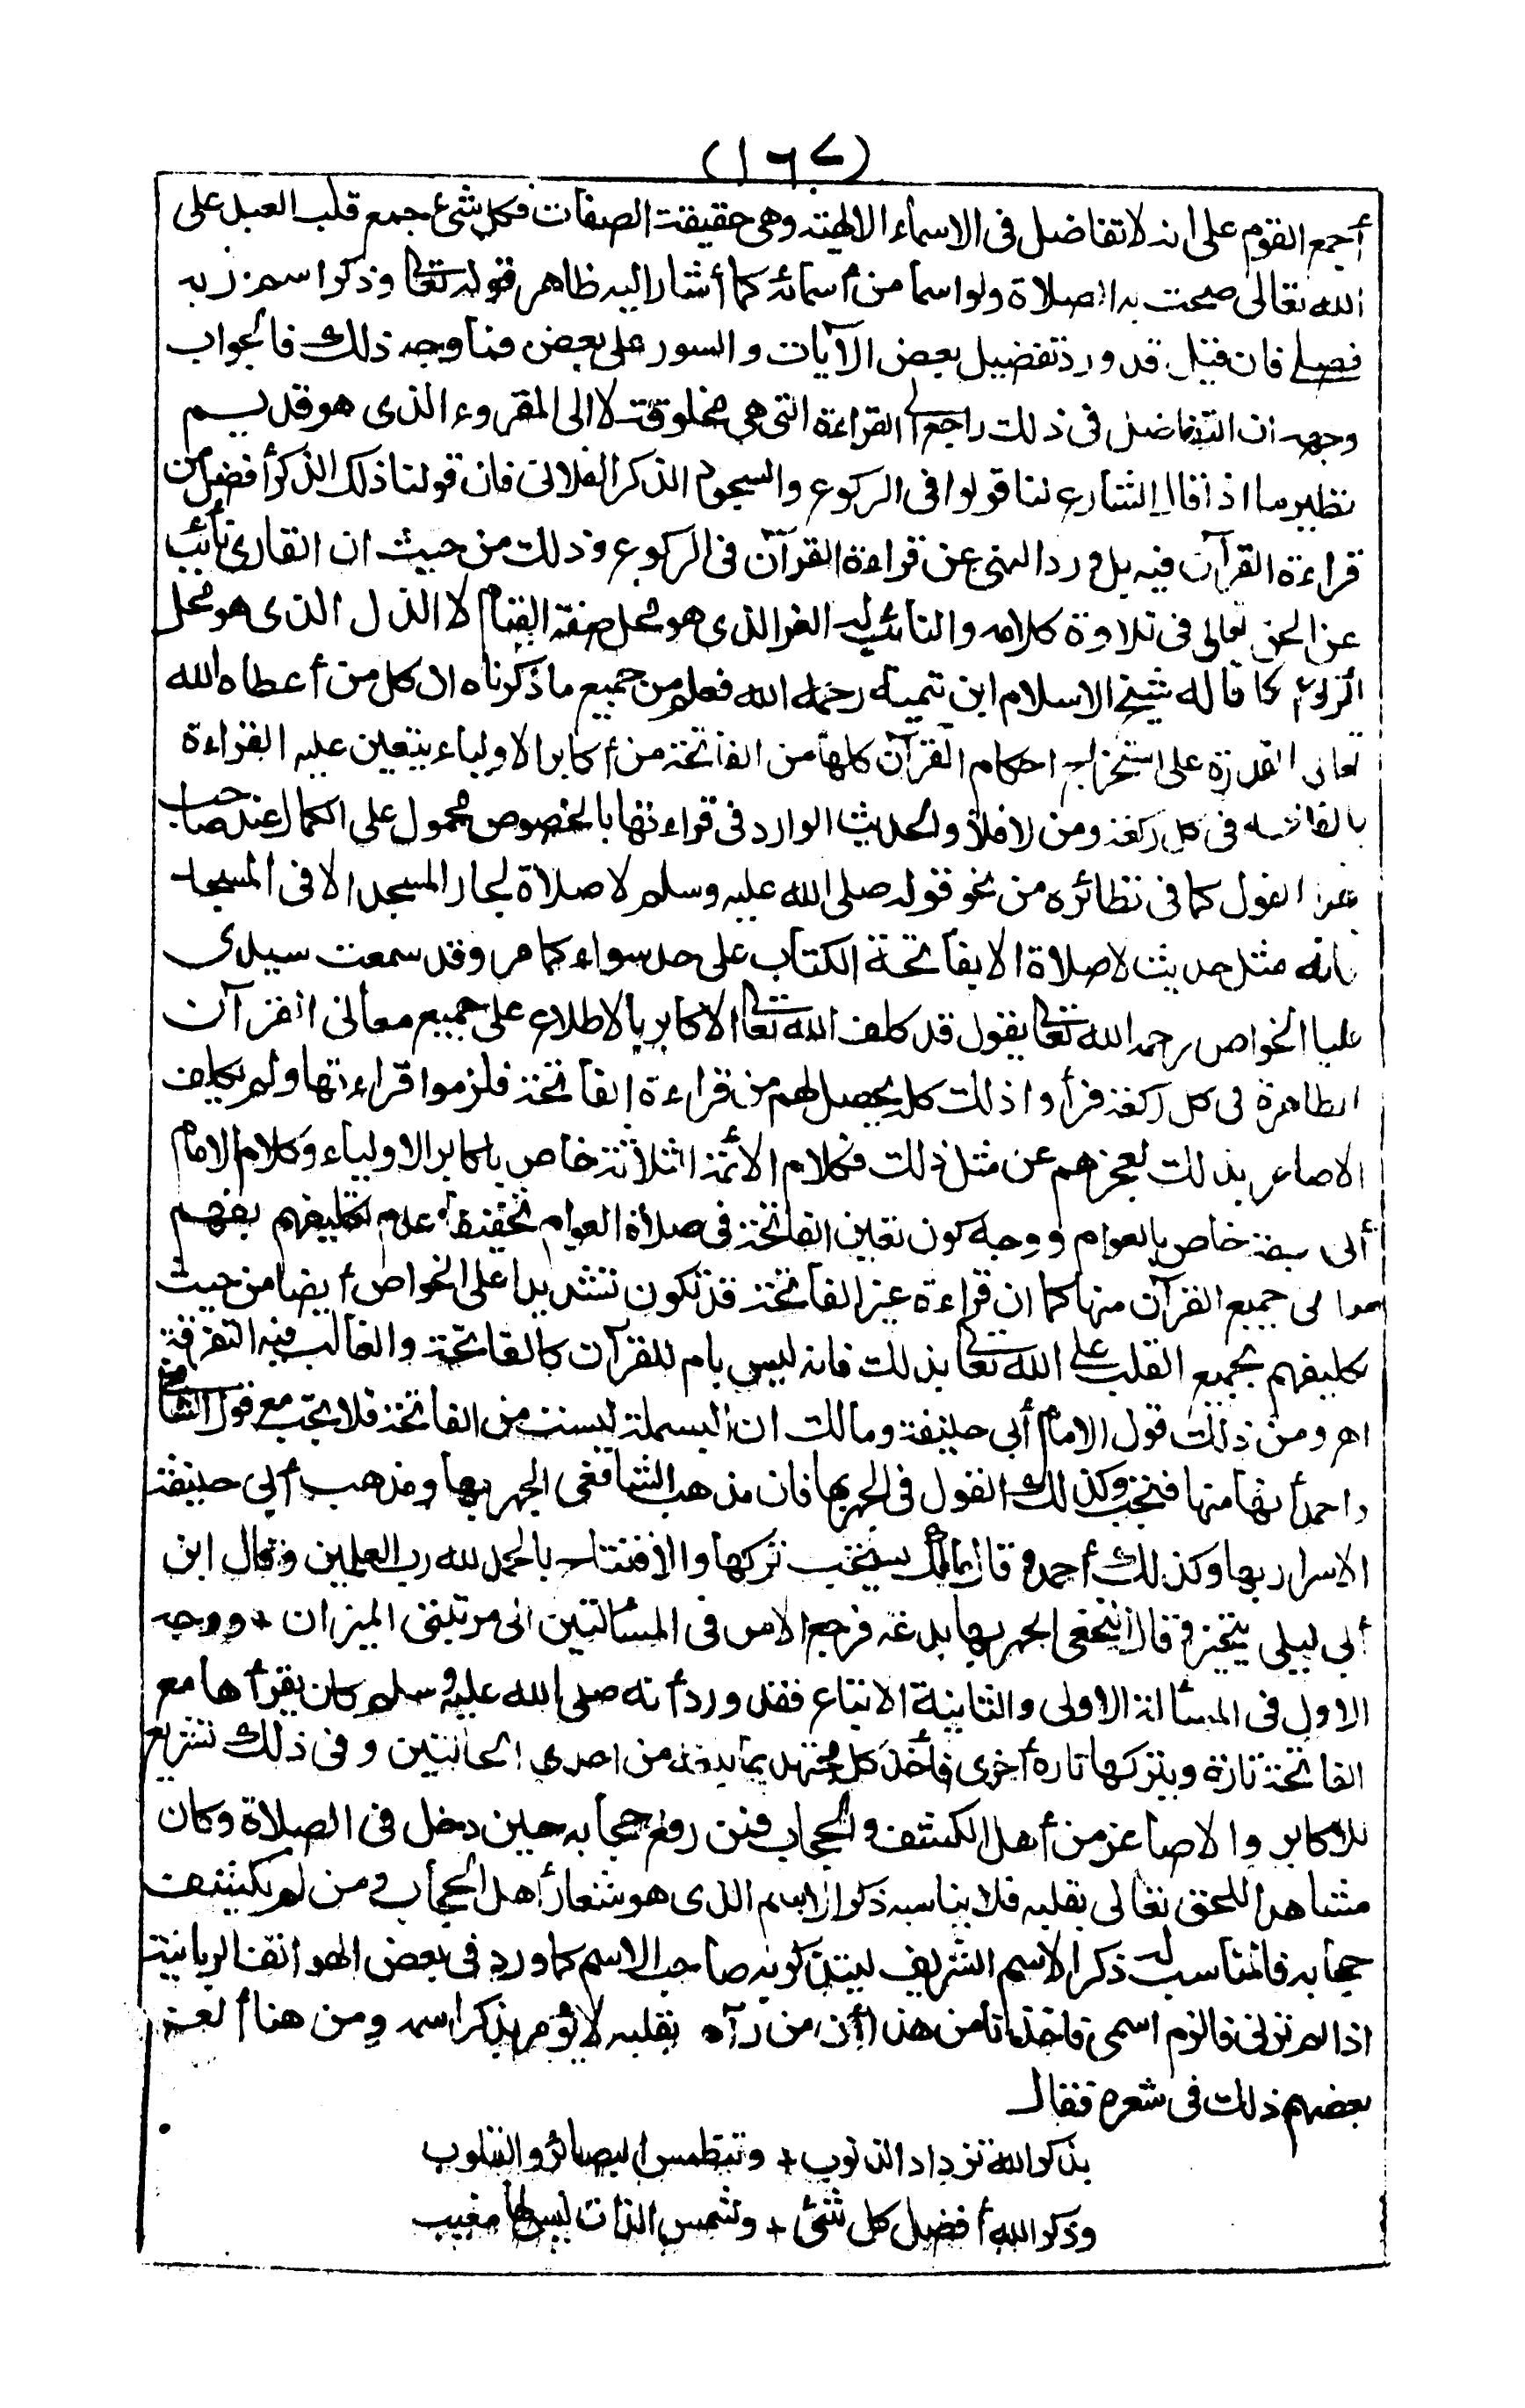 (١٦٧)
أجمع القوم على انه لا تفاضل فى الاسماء الالهية وهى حقيقة الصفات فكل شئ جمع قلب العبد على
الله تعالى صحت به الصلاة ولو اسما من أسمائه كما أشار اليه ظاهر قوله تعالى وذكر اسم ربه
فصلى فان قيل قد ورد تفضيل بعض الآيات والسور على بعض فما وجه ذلك فالجواب
وجهه ان التفاضل فى ذلك راجع الى القراءة التى هى مخلوقة لا الى المقروء الذى هو قديم
نظير ما اذا قال الشارع لنا قولوا فى الركوع والسجود الذكر الفلانى فان قولنا ذلك الذكر أفضل من
قراءة القرآن فيه بل ورد النهى عن قراءة القرآن فى الركوع وذلك من حيث ان القارئ نائب
عن الحق تعالى فى تلاوة كلامه والنائب له العز الذى هو محل صفة القيام لا الذل الذى هو محل
الركوع كما قاله شيخ الاسلام ابن تيمية رحمه الله فعلم من جميع ما ذكرناه ان كل من أعطاه الله
تعالى القدرة على استخراج احكام القرآن كلها من الفاتحة من أكابر الاولياء يتعين عليه القراءة
بالفاتحة فى كل ركعة ومن لا فلا والحديث الوارد فى قراءتها بالخصوص محمول على الكمال عند صاحب
هذا القول كما فى نظائره من نحو قوله صلى الله عليه وسلم لا صلاة لجار المسجد الا فى المسجد
فانه مثل حديث لا صلاة الا بفاتحة الكتاب على حد سواء كما مر وقد سمعت سيدى
عليا الخواص رحمه الله تعالى يقول قد كلف الله تعالى الاكابر بالاطلاع على جميع معانى القرآن
الظاهرة فى كل ركعة فرأوا ذلك كله يحصل لهم من قراءة الفاتحة فلزموا قراءتها ولم يكلف
الاصاغر بذلك لعجزهم عن مثل ذلك فكلام الأئمة الثلاثة خاص باكابر الاولياء وكلام الامام
أبى حنيفة خاص بالعوام ووجه كون تعين الفاتحة فى صلاة العوام تخفيفا عدم تكليفهم بفهم
معانى جميع القرآن منها كما ان قراءة غير الفاتحة قد تكون تشديدا على الخواص أيضا من حيث
تكليفهم بجميع القلب على الله تعالى بذلك فانه ليس بام للقرآن كالفاتحة والغالب فيه التفرقة
اهـ ومن ذلك قول الامام أبى حنيفة ومالك ان البسملة ليست من الفاتحة فلا تجب مع قول الشافعى
واحمد أنها منها فتجب وكذلك القول فى الجهر بها فان مذهب الشافعى الجهر بها ومذهب أبى حنيفة
الاسرار بها وكذلك أحمد وقال مالك يستحب تركها والافتتاح بالحمد لله رب العلمين وقال ابن
أبى ليلى يتخير وقال النخعى الجهر بها بدعة فرجع الامر فى المسألتين الى مرتبتى الميزان + ووجه
الاول فى المسألة الاولى والثانية الاتباع فقد ورد أنه صلى الله عليه وسلم كان يقرأها مع
الفاتحة تارة ويتركها تارة أخرى فأخذ كل مجتهد بما بلغه من احدى الحالتين وفى ذلك تشريع
للاكابر والاصاغر من أهل الكشف والحجاب فمن رفع حجابه حين دخل فى الصلاة وكان
مشاهدا للحق تعالى بقلبه فلا يناسبه ذكر الاسم الذى هو شعار أهل الحجاب ومن لم يكشف
حجابه فالمناسب له ذكر الاسم الشريف ليتذكر به صاحب الاسم كما ورد فى بعض الهواتف الربانية
اذا لم ترنى فالزم اسمى فاخذنا من هذا أن من رآه بقلبه لا يؤمر بذكر اسمه ومن هنا ألغز
بعضهم ذلك فى شعره فقال
بذكر الله تزداد الذنوب + وتنطمس البصائر والقلوب
وذكر الله أفضل كل شئ + وشمس الذات ليس لها مغيب